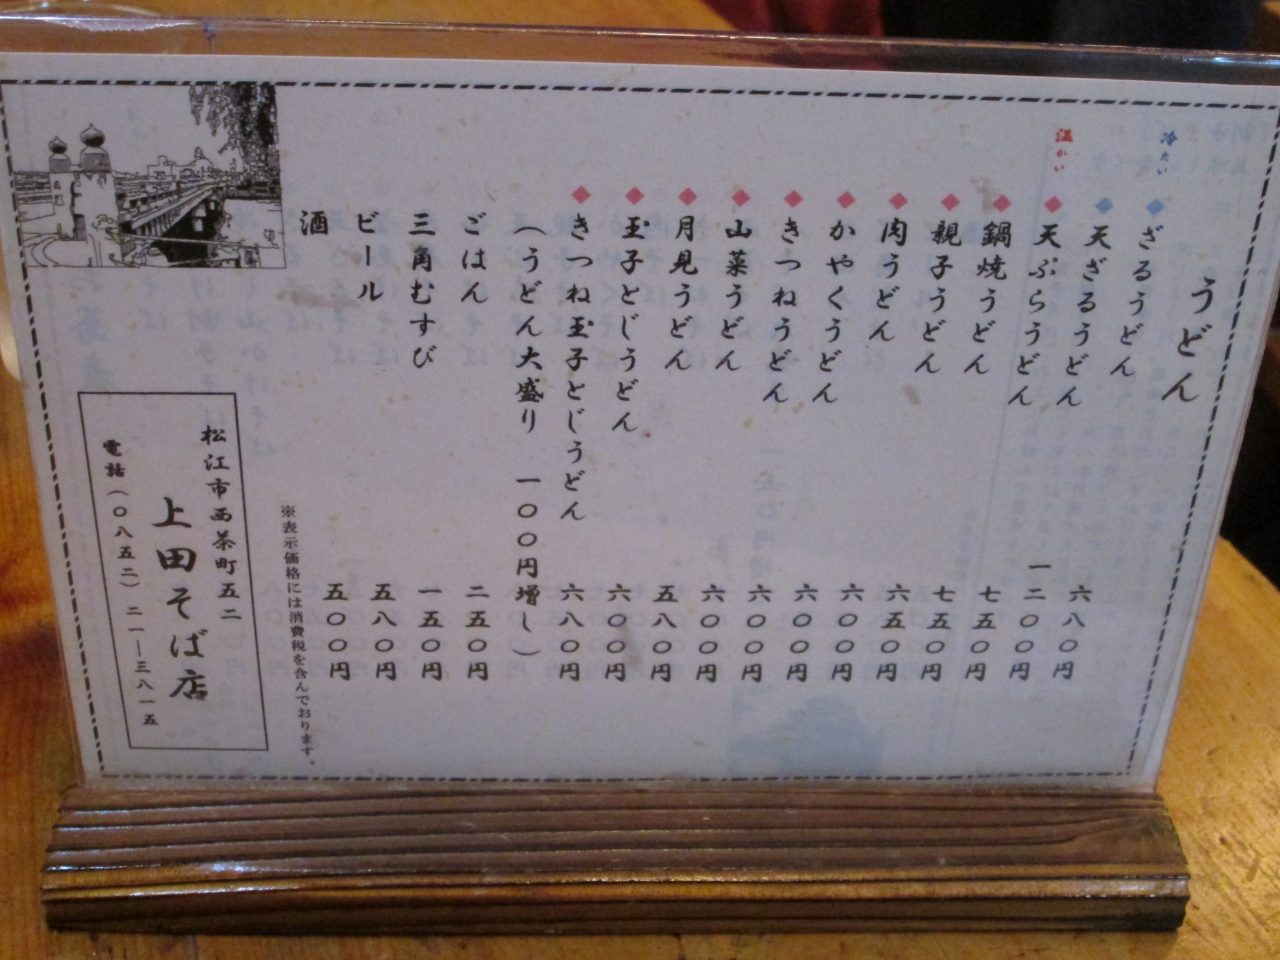 うどん
冷たい
ざるうどん 六八〇円
天ざるうどん 一二〇〇円
温かい
天ぷらうどん 七五〇円
鍋焼うどん 七五〇円
親子うどん 六五〇円
肉うどん 六〇〇円
かやくうどん 六〇〇円
きつねうどん 六〇〇円
山菜うどん 六〇〇円
月見うどん 五八〇円
玉子とじうどん 六〇〇円
きつね玉子とじうどん 六八〇円
（うどん大盛り 一〇〇円増し）
ごはん 二五〇円
三角むすび 一五〇円
ビール 五八〇円
酒 五〇〇円
※表示価格には消費税を含んでおります。
松江市西茶町五二
上田そば店
電話（〇八五二）二一―三八一五